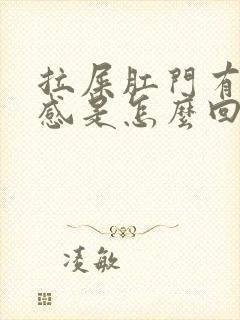 拉屎肛門有
感是怎麼回
凌敏